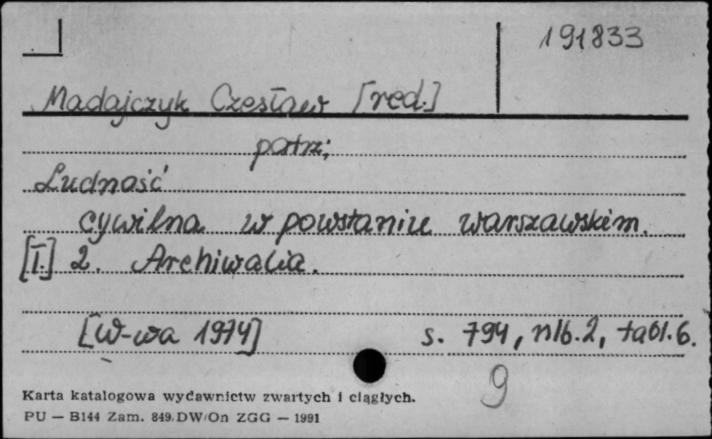 191833
Madajczyk Czesław [red.]
patrz:
Ludność
cywilna w powstaniu warszawskim.
[I.] 2. Archiwalia.
[W-wa 1974] s. 794, nlb. 2, tabl. 6.
9
Karta katalogowa wydawnictw zwartych i ciągłych.
PU — B144 Zam. 849. DW/On ZGG — 1991